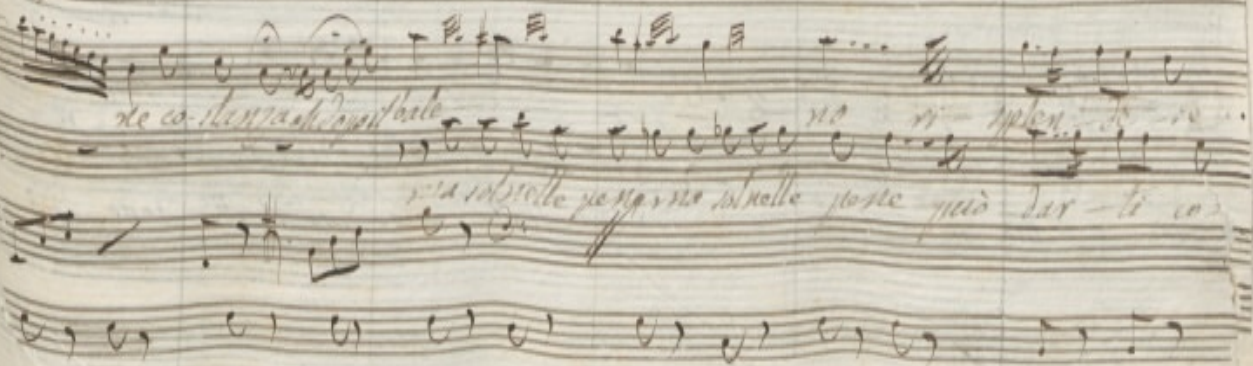 ne co-stanza
no ri splen-de-re
ma sol nelle pene ma sol nelle pene può dar-ti co